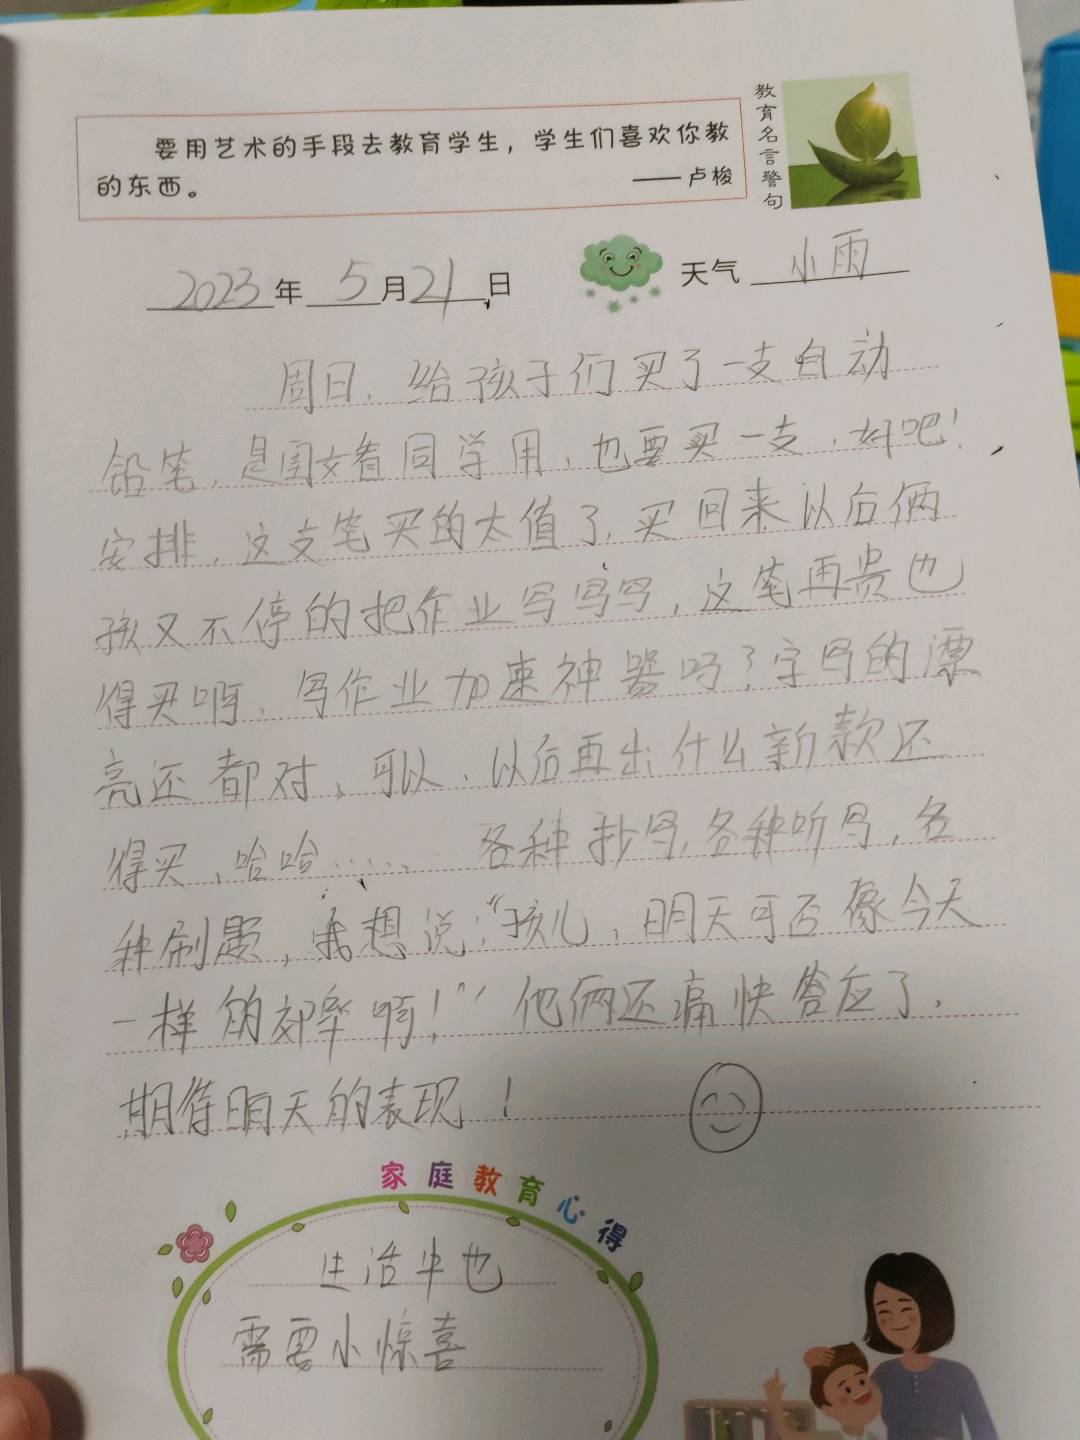 要用艺术的手段去教育学生，学生们喜欢你教
的东西。
——卢梭
教育名言警句
2023年5月21日 天气 小雨
周日，给孩子们买了一支自动
铅笔，是闺女看同学用，也要买一支，好吧！
安排，这支笔买的太值了，买回来以后俩
孩又不停的把作业写写写，这笔再贵也
得买啊，写作业加速神器吗？字写的漂
亮还都对，可以，以后再出什么新款还
得买，哈哈…… 各种抄写，各种听写，各
种刷题，我想说：“孩儿，明天可否像今天
一样的效率啊！”他俩还痛快答应了，
期待明天的表现！
家庭教育心得
生活中也
需要小惊喜